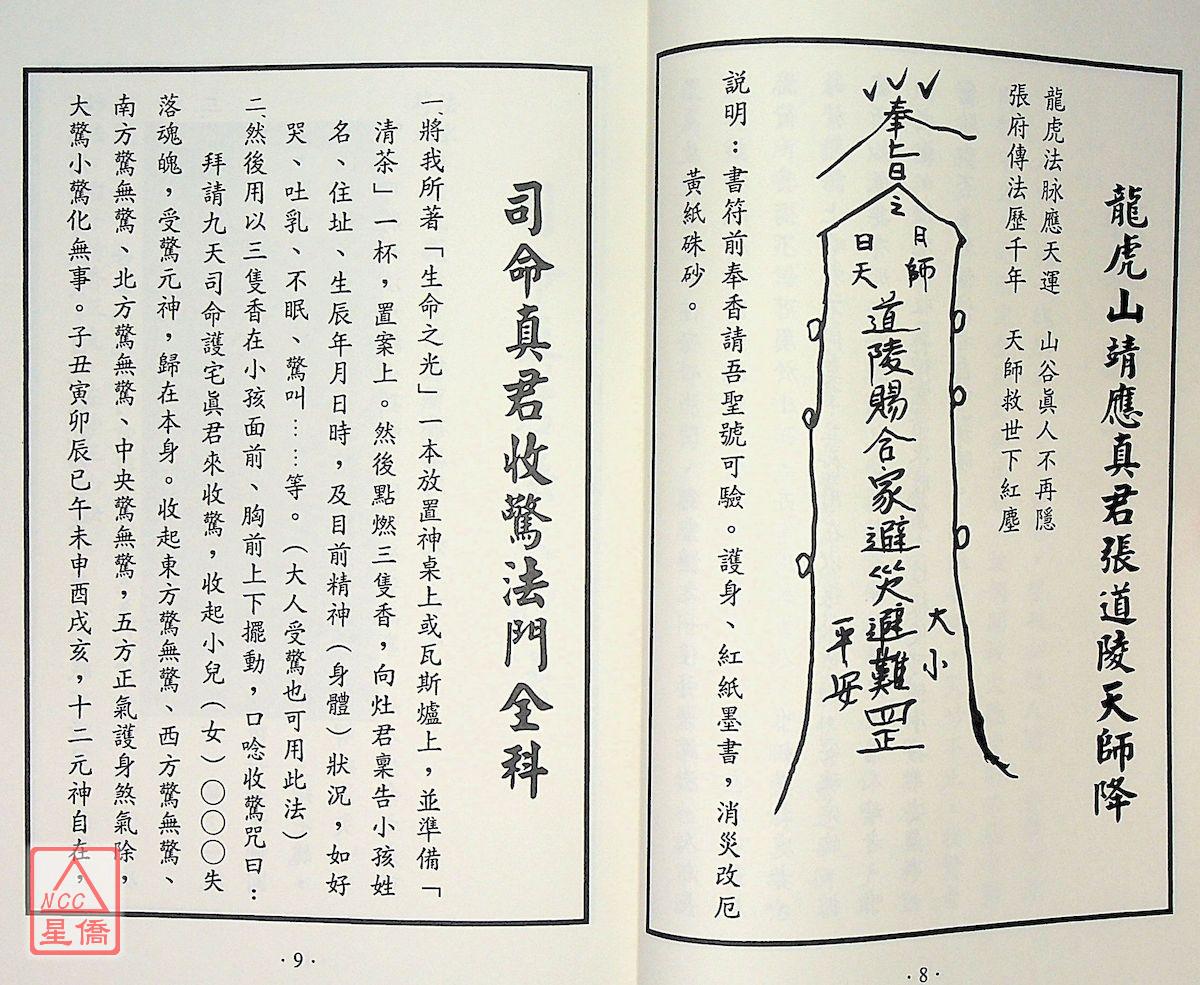 龍虎山靖應真君張道陵天師降
龍虎法脉應天運　山谷眞人不再隱
張府傳法歷千年　天師救世下紅塵
奉旨
令
日 月
天 師
道陵賜合家避災避難罡
大小
平安
説明：書符前奉香請吾聖號可驗。護身、紅紙墨書，消災改厄
黃紙硃砂。
·8·
司命真君收驚法門全科
一、將我所著「生命之光」一本放置神桌上或瓦斯爐上，並準備「
清茶」一杯，置案上。然後點燃三隻香，向灶君稟告小孩姓
名、住址、生辰年月日時，及目前精神（身體）狀況，如好
哭、吐乳、不眠、驚叫……等。（大人受驚也可用此法）
二、然後用以三隻香在小孩面前、胸前上下擺動，口唸收驚咒曰：
拜請九天司命護宅眞君來收驚，收起小兒（女）〇〇〇失
落魂魄，受驚元神，歸在本身。收起東方驚無驚、西方驚無驚、
南方驚無驚、北方驚無驚、中央驚無驚，五方正氣護身煞氣除，
大驚小驚化無事。子丑寅卯辰巳午未申酉戌亥，十二元神自在，
·9·
NCC
星僑